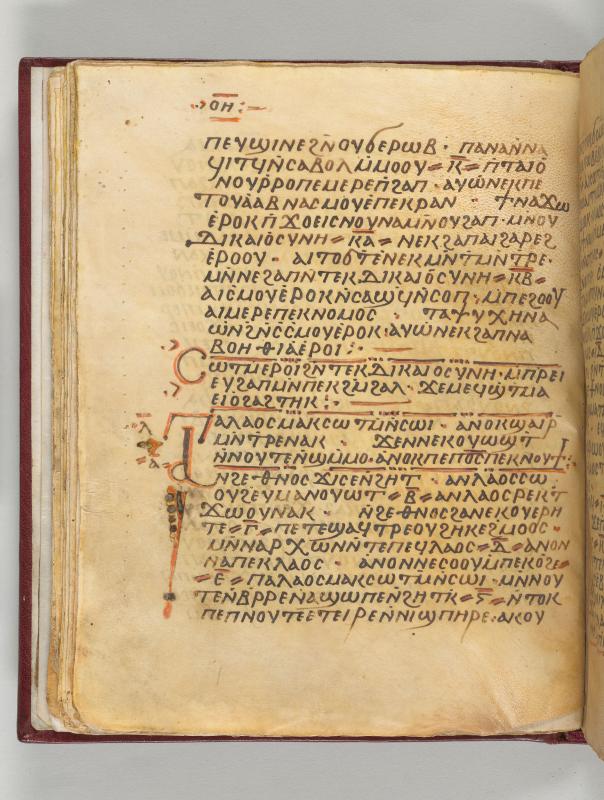 ⲟⲏ
ⲡⲉϥϣⲓⲛⲉϩⲛⲟⲩϭⲉⲣⲱⲃ · ⲡⲁⲛⲁⲛⲛⲁ
ϥⲓⲧϥⲛⲥⲁⲃⲟⲗⲙⲙⲟⲟⲩ = ⲕ̅ = ⲛⲧⲁⲓⲟ
ⲛⲟⲩⲣⲣⲟⲡⲉⲙⲉⲣⲉⲡϩⲁⲡ · ⲁⲩⲱⲛⲉⲕⲡⲉ
ⲧⲟⲩⲁⲁⲃⲛⲁⲥⲙⲟⲩⲉⲡⲉⲕⲣⲁⲛ · ϯⲛⲁⲭⲱ
ⲉⲣⲟⲕⲡϪⲟⲉⲓⲥⲛⲟⲩⲛⲁⲙⲛⲟⲩϩⲁⲡ · ⲙⲛⲟⲩ
ⲇⲓⲕⲁⲓⲟⲥⲩⲛⲏ = ⲕ̅ⲁ̅ = ⲛⲉⲕϩⲁⲡⲁⲓϩⲁⲣⲉϩ
ⲉⲣⲟⲟⲩ · ⲁⲓⲧⲟⲃⲧⲉⲛⲉⲕⲙⲛⲧⲙⲛⲧⲣⲉ ·
ⲙⲛⲛⲉϩⲁⲡⲛⲧⲉⲕⲇⲓⲕⲁⲓⲟⲥⲩⲛⲏ = ⲕ̅ⲃ̅ =
ⲁⲓⲥⲙⲟⲩⲉⲣⲟⲕⲛⲥⲁϣϥⲛⲥⲟⲡ · ⲙⲡⲉϩⲟⲟⲩ
ⲁⲓⲙⲉⲣⲉⲡⲉⲕⲛⲟⲙⲟⲥ · ⲧⲁⲯⲩⲭⲏⲛⲁ
ⲱⲛϩⲛⲥⲥⲙⲟⲩⲉⲣⲟⲕ · ⲁⲩⲱⲛⲉⲕϩⲁⲡⲛⲁ
ⲃⲟⲏⲑⲓⲁⲉⲣⲟⲓ :
ⲥⲱⲧⲙⲉⲣⲟⲓϩⲛⲧⲉⲕⲇⲓⲕⲁⲓⲟⲥⲩⲛⲏ · ⲙⲡⲣⲉⲓ
ⲉⲩϩⲁⲡⲙⲛⲡⲉⲕϩⲙϩⲁⲗ · ϫⲉⲙⲉϥⲱⲧⲙⲁ
ⲉⲓⲟϩⲁϩⲧⲏⲕ :
ⲡⲁⲗⲁⲟⲥⲙⲁⲕⲥⲱⲧⲙⲛⲥⲱⲓ · ⲁⲛⲟⲕϣⲁⲓⲣ
ⲙⲛⲧⲣⲉⲛⲁⲕ · ϫⲉⲛⲛⲉⲕⲟⲩⲱϣⲧ
ⲛⲛⲟⲩⲧⲉⲛϣⲙⲙⲟ · ⲁⲛⲟⲕⲡⲉⲡⲟⲥⲡⲉⲕⲛⲟⲩϯ :
ⲁⲛϩⲉⲑⲛⲟⲥϫⲓⲥⲉⲛϩⲏⲧ · ⲁⲛⲗⲁⲟⲥⲥⲱ
ⲟⲩϩⲉⲩⲙⲁⲛⲟⲩⲱⲧ = ⲃ̅ = ⲁⲛⲗⲁⲟⲥⲣⲉⲕⲧ
ϫⲱⲟⲩⲛⲁⲕ · ⲛϩⲉⲑⲛⲟⲥϩⲁⲛⲉⲕⲟⲩⲉⲣⲏ
ⲧⲉ = ⲅ̅ = ⲡⲉⲧⲉϣⲁϥⲧⲣⲉⲟⲩϩⲏⲕⲉϩⲙⲟⲟⲥ ·
ⲙⲛⲛⲁⲣⲭⲱⲛⲛⲧⲉⲡⲉϥⲗⲁⲟⲥ = ⲇ̅ = ⲁⲛⲟⲛ
ⲛⲁⲡⲉⲕⲗⲁⲟⲥ · ⲁⲛⲟⲛⲛⲉⲥⲟⲟⲩⲙⲡⲉⲕⲟϩⲉ =
= ⲉ̅ = ⲡⲁⲗⲁⲟⲥⲙⲁⲕⲥⲱⲧⲙⲛⲥⲱⲓ · ⲙⲛⲛⲟⲩ
ⲧⲉⲛⲃⲣⲣⲉⲛⲁϣⲱⲡⲉⲛϩⲏⲧⲕ = ⲋ̅ = ⲛⲧⲟⲕ
ⲡⲉⲡⲛⲟⲩⲧⲉⲉⲧⲉⲓⲣⲉⲛⲛⲓϣⲡⲏⲣⲉ · ⲁⲕⲟⲩ